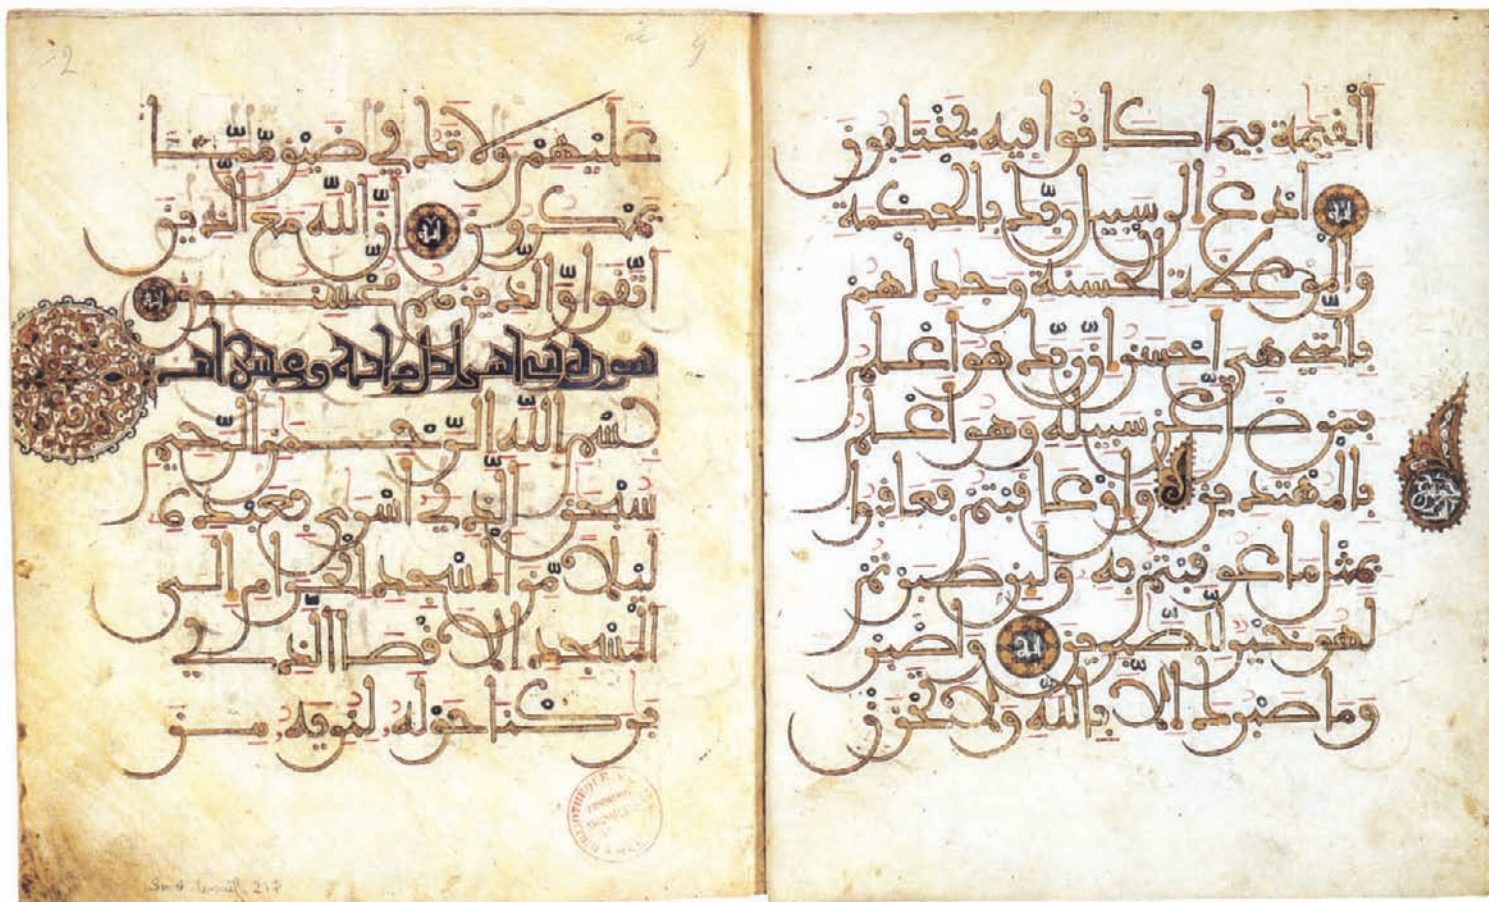 القيمة فيما كانوا فيه يختلفون
ادع الى سبيل ربك بالحكمة
والموعظة الحسنة وجدلهم
بالتي هي احسن ان ربك هو اعلم
بمن ضل عن سبيله وهو اعلم
بالمهتدين وان عاقبتم فعاقبوا
بمثل ما عوقبتم به ولين صبرتم
لهو خير للصبرين واصبر
وما صبرك الا بالله ولا تحزن
2
عليهم ولا تك في ضيق مما
يمكرون ان الله مع الذين
اتقوا والذين هم محسنون
سورة بني اسرايل ماية وعشر
بسم الله الرحمن الرحيم
سبحن الذي اسرى بعبده
ليلا من المسجد الحرام الى
المسجد الاقصا الذي
بركنا حوله لنريه من
BIBLIOTHEQUE
217